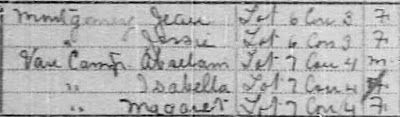 Montgomery Jean Lot 6 Con 3 F.
" Jessie Lot 6 Con 3 F.
Van Camp Abraham Lot 7 Con 4 m.
" Isabella Lot 7 Con 4 F.
" Margaret Lot 7 Con 4 F.